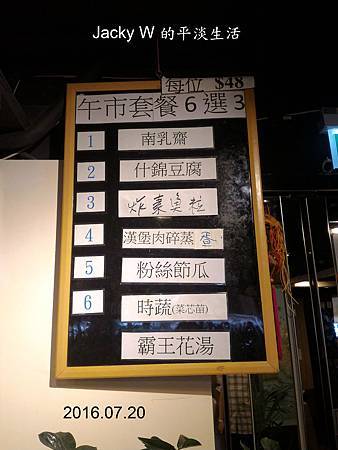 Jacky W 的平淡生活
每位 $48
午市套餐6選3
1 南乳齋
2 什錦豆腐
3 炸東魚粒
4 漢堡肉碎蒸蛋
5 粉絲節瓜
6 時蔬(菜芯苗)
霸王花湯
2016.07.20